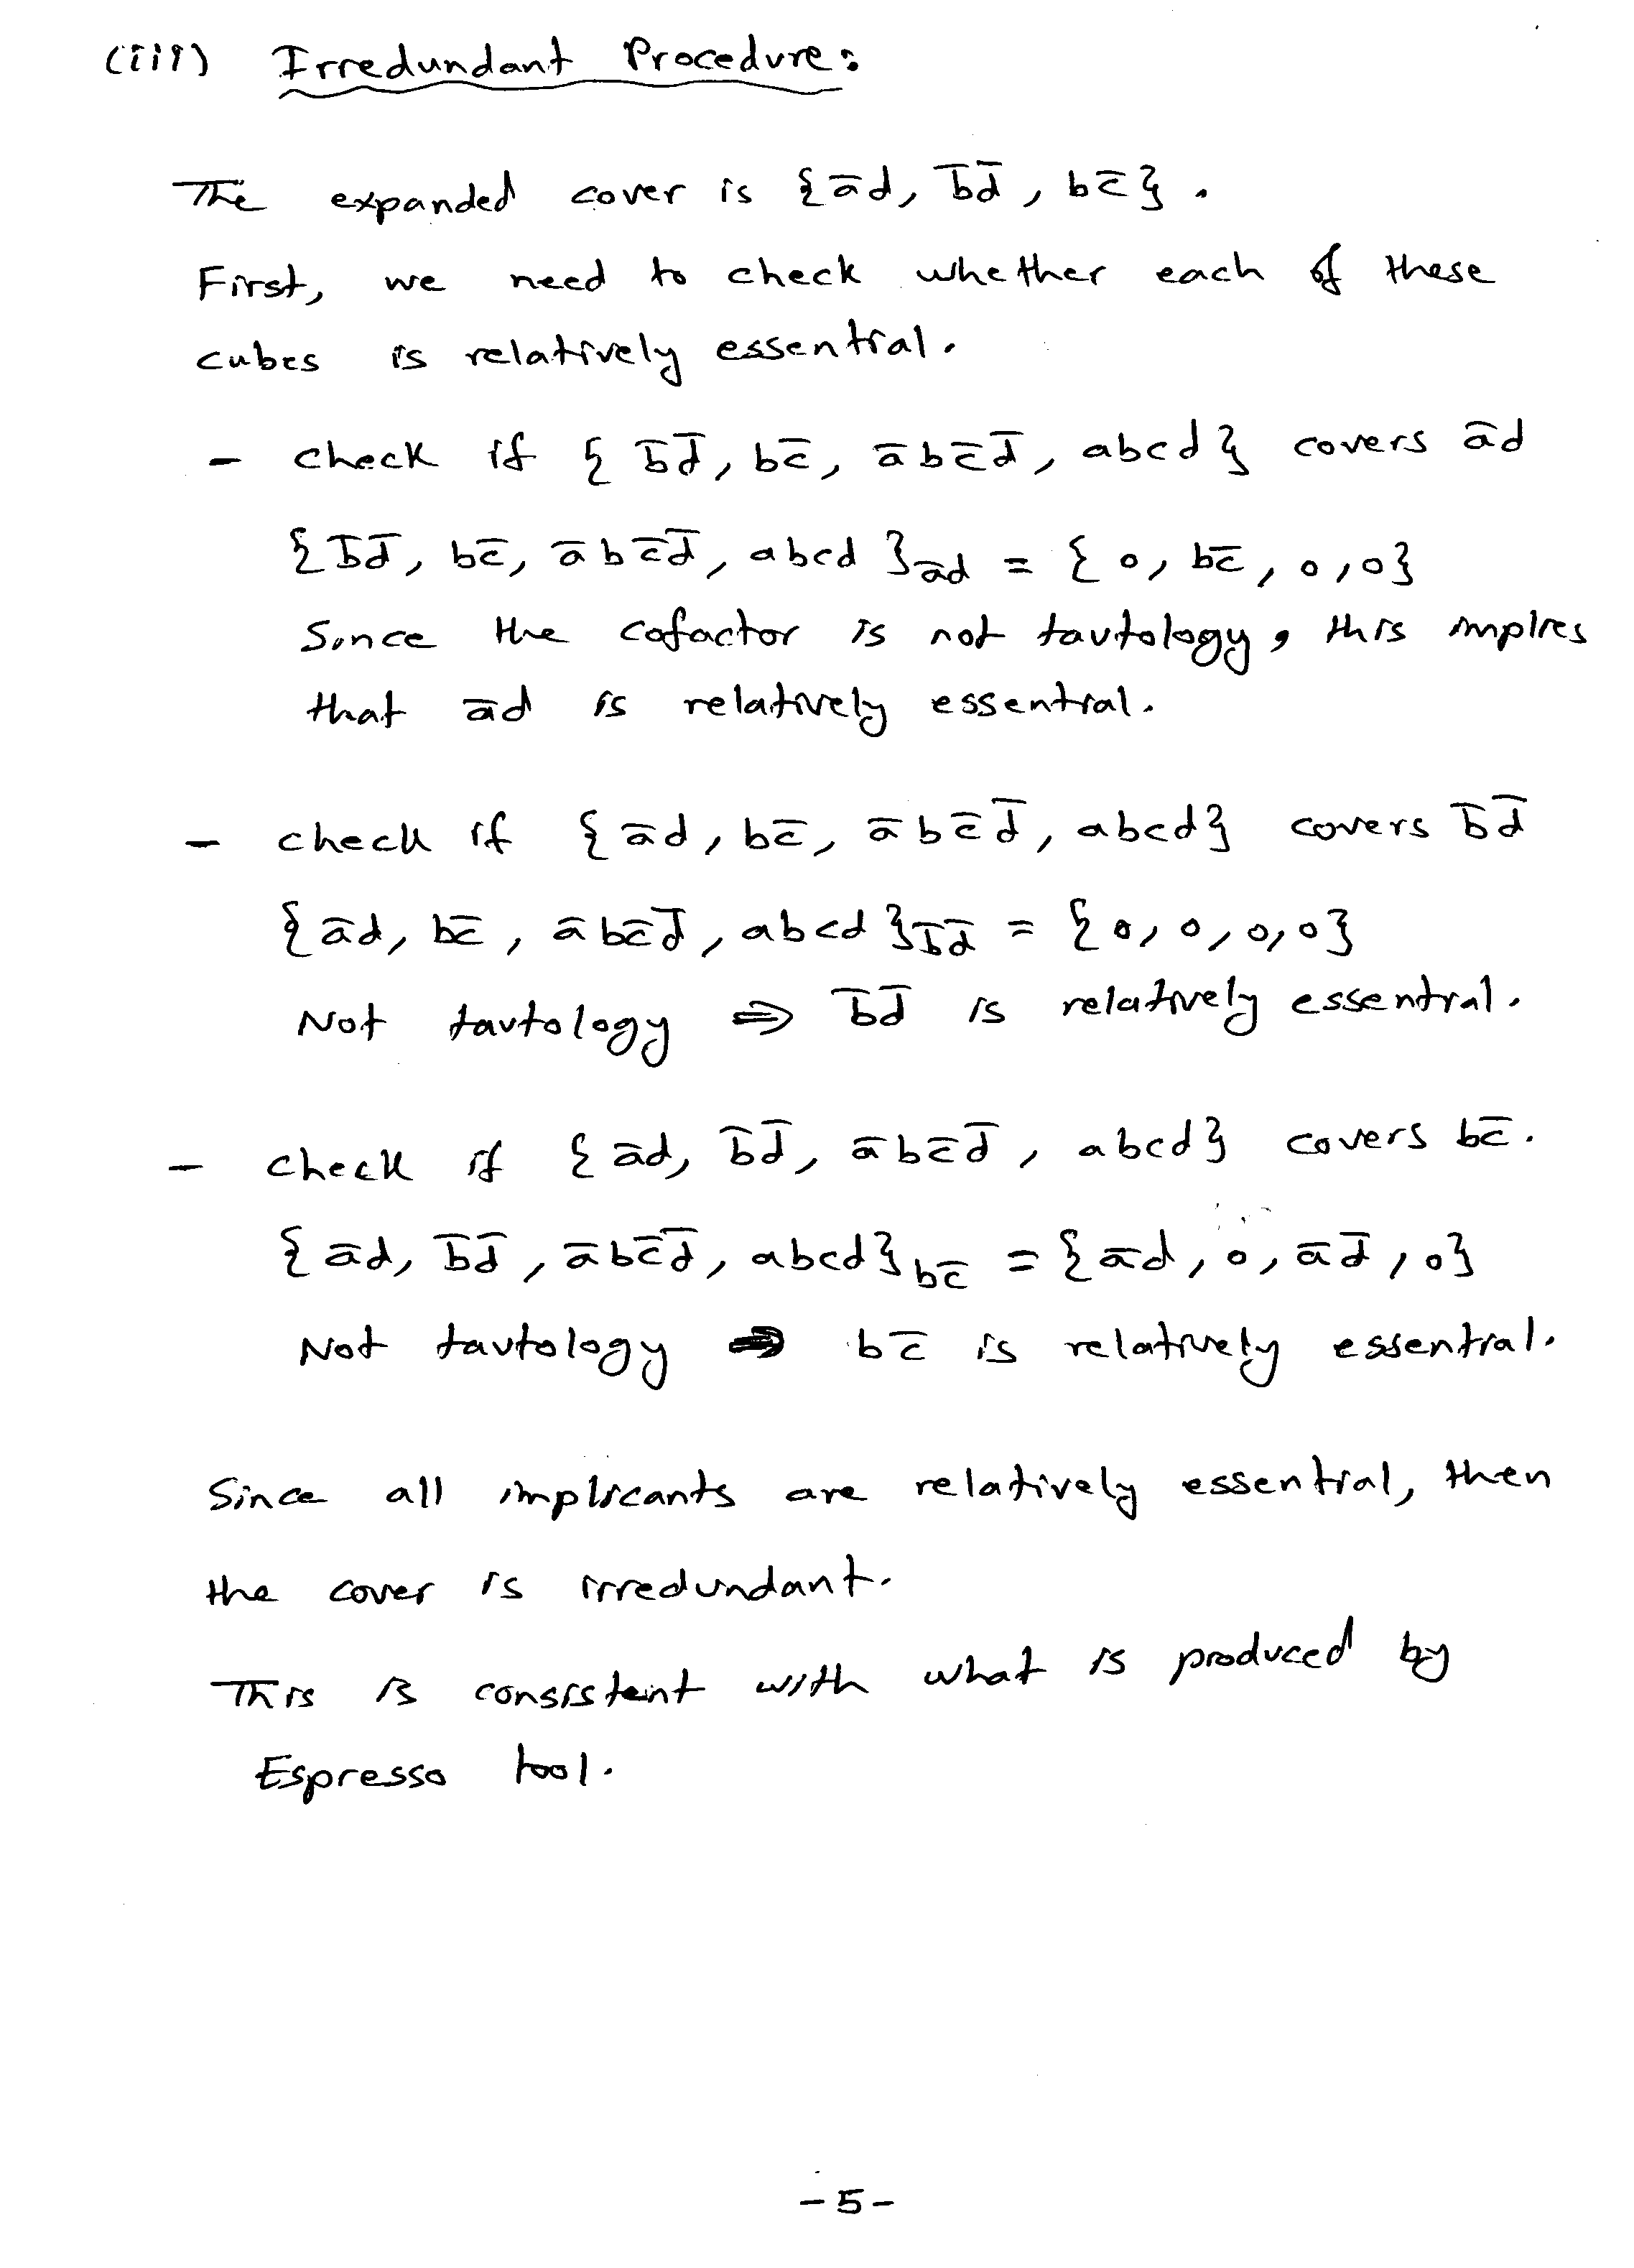 (iii) Irredundant Procedure:
The expanded cover is {ād, b̄d̄, bc̄}.
First, we need to check whether each of these
cubes is relatively essential.
- check if {b̄d̄, bc̄, ābc̄d̄, abcd} covers ād
{b̄d̄, bc̄, ābc̄d̄, abcd}ād = {0, bc̄, 0, 0}
Since the cofactor is not tautology, this implies
that ād is relatively essential.
- check if {ād, bc̄, ābc̄d̄, abcd} covers b̄d̄
{ād, bc̄, ābc̄d̄, abcd}b̄d̄ = {0, 0, 0, 0}
Not tautology ⇒ b̄d̄ is relatively essential.
- check if {ād, b̄d̄, ābc̄d̄, abcd} covers bc̄.
{ād, b̄d̄, ābc̄d̄, abcd}bc̄ = {ād, 0, ād̄, 0}
Not tautology ⇒ bc̄ is relatively essential.
Since all implicants are relatively essential, then
the cover is irredundant.
This is consistent with what is produced by
Espresso tool.
-5-